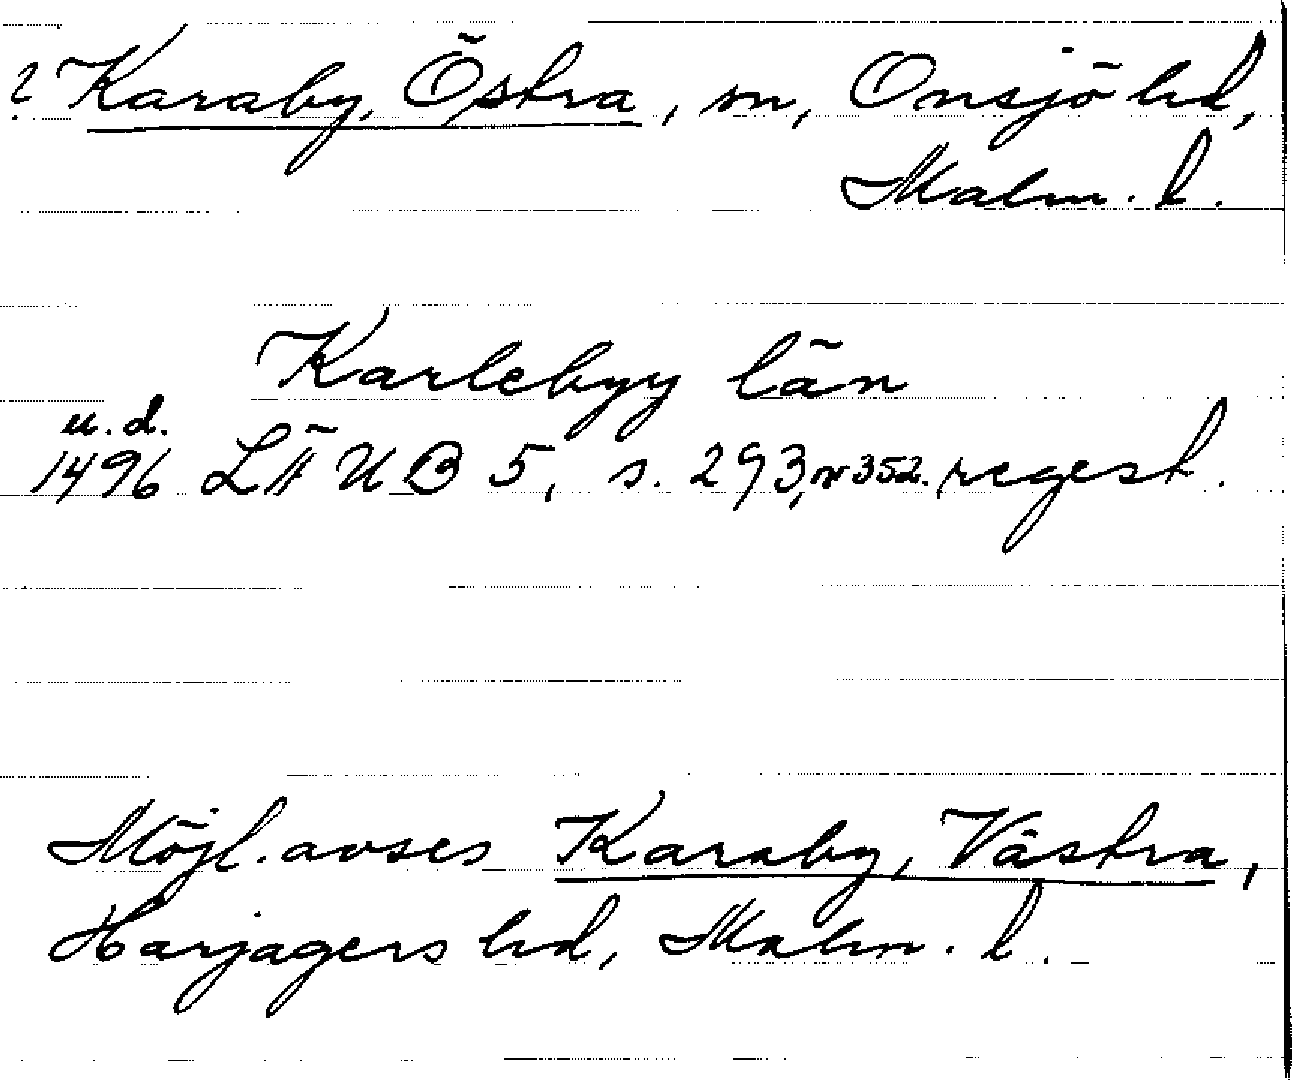 ? Karaby, Östra, sn, Onsjö hd,
Malm. l.
Karlebyy län
u. d.
1496 LÄUB 5, s. 293, nr 352. regest.
Möjl. avses Karaby, Västra,
Harjagers hd, Malm. l.